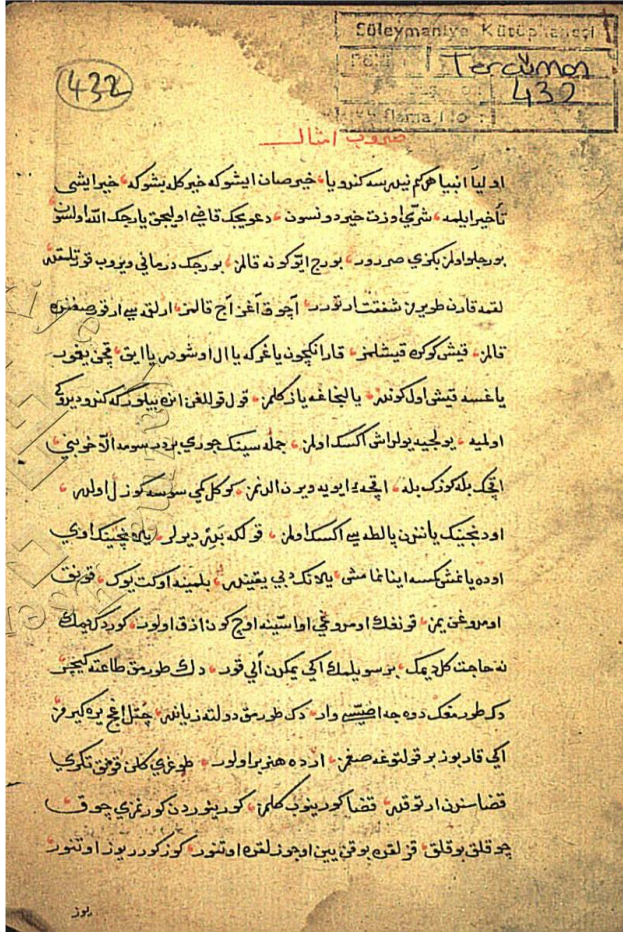 Süleymaniye Kütüphanesi
Tercüman
432
432
ضروب امثال
اولیا انبیا هر کم نیلرسه کندویا خیر صان ایشوکه خیر کله بشوکه خیر ایشی
تأخیر ایلمه شری اوزت خیر دونسون دعویجک قاضی اولیجق یاردجک الله اولسون
بورجلو اولن بکزی صررور بورج ایو کونه قالمز بورجک درمانی ویروب قورتلمقدر
لقمه قارن طویرمز شفقت ارتورر آچوق آغز آج قالمز
قالمز قیش کورن قیشلمز قار انکچون یاغر که یا ال اوشودر یا ایق قچن یغمور
یاغسه قیش اول کوندر یالنجاغه یاز کلمز قول قوللغن ایده بیلور که کندو دیروکی
اولمیه یولجیه یولداش اکسک اولمز جمله سینک جوری بردر سومه الا خوبنی
اقچک بله کوزک بله اقچه ایویه ویرن الدنمز کوکل کمی سوسه کوزل اولدر
اودنجینک یاننده بالطه سی اکسک اولمز قولکه دیولر یلانچینک اوی
اوده یانمش کمسه اینانمامش یلانک دبی یقیندر بلمینه اوکت یوک قونق
اومدوغن یمز قونغک اومدوغی اواسینه اوچ کون ازق اولور کوردک دیمک
نه حاجت کل دیمک بر سویلمک ایکی یمکدن الی قور دک طورمق طاعته کیچر
دک طورمغک دوه جه اصیسی وار دک طورمق دولته زیاندر چتل اغج یره کیرمز
ایکی قاربوز بر قولتوغه صغمز ارده هنر بر اولور طوغری کلن قومق تکری
قضاسندن ارتوقدر قضا کورینوب کلمز کورینوردن کورنمزی چوق
چوقلق بوقلق قزلقده بوقی یین اوجوزلقده اوتنور کوز کورر یوز اوتنور
یوز